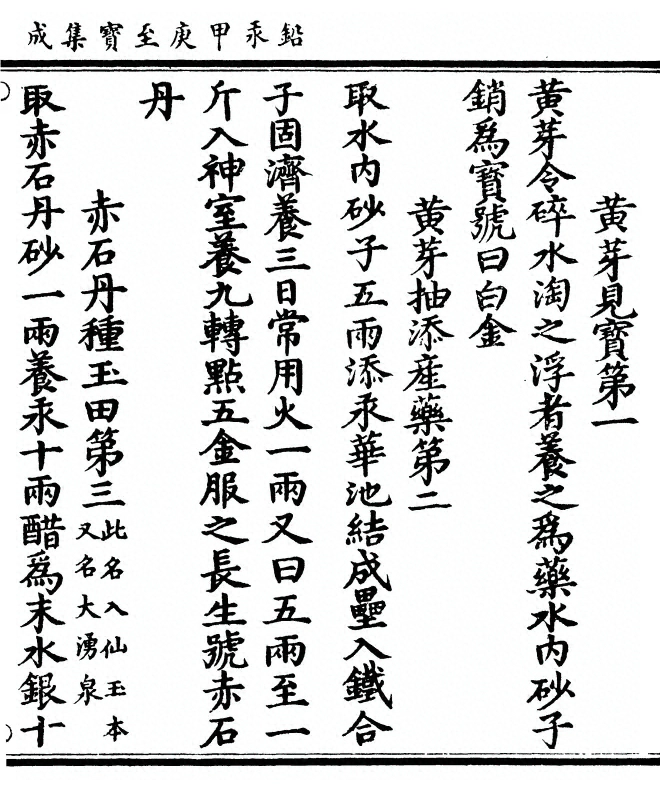 鉛汞甲庚至寶集成
黄芽見寶第一
黄芽令碎水淘之浮者養之爲藥水内砂子
銷爲寳號曰白金
黄芽抽添産藥第二
取水内砂子五兩添汞華池結成壘入鐵合
子固濟養三日常用火一兩又曰五兩至一
斤入神室養九轉㸃五金服之長生號赤石
丹
赤石丹種玉田第三此名入仙玉本又名大湧泉
取赤石丹砂一兩養汞十兩醋爲末水銀十